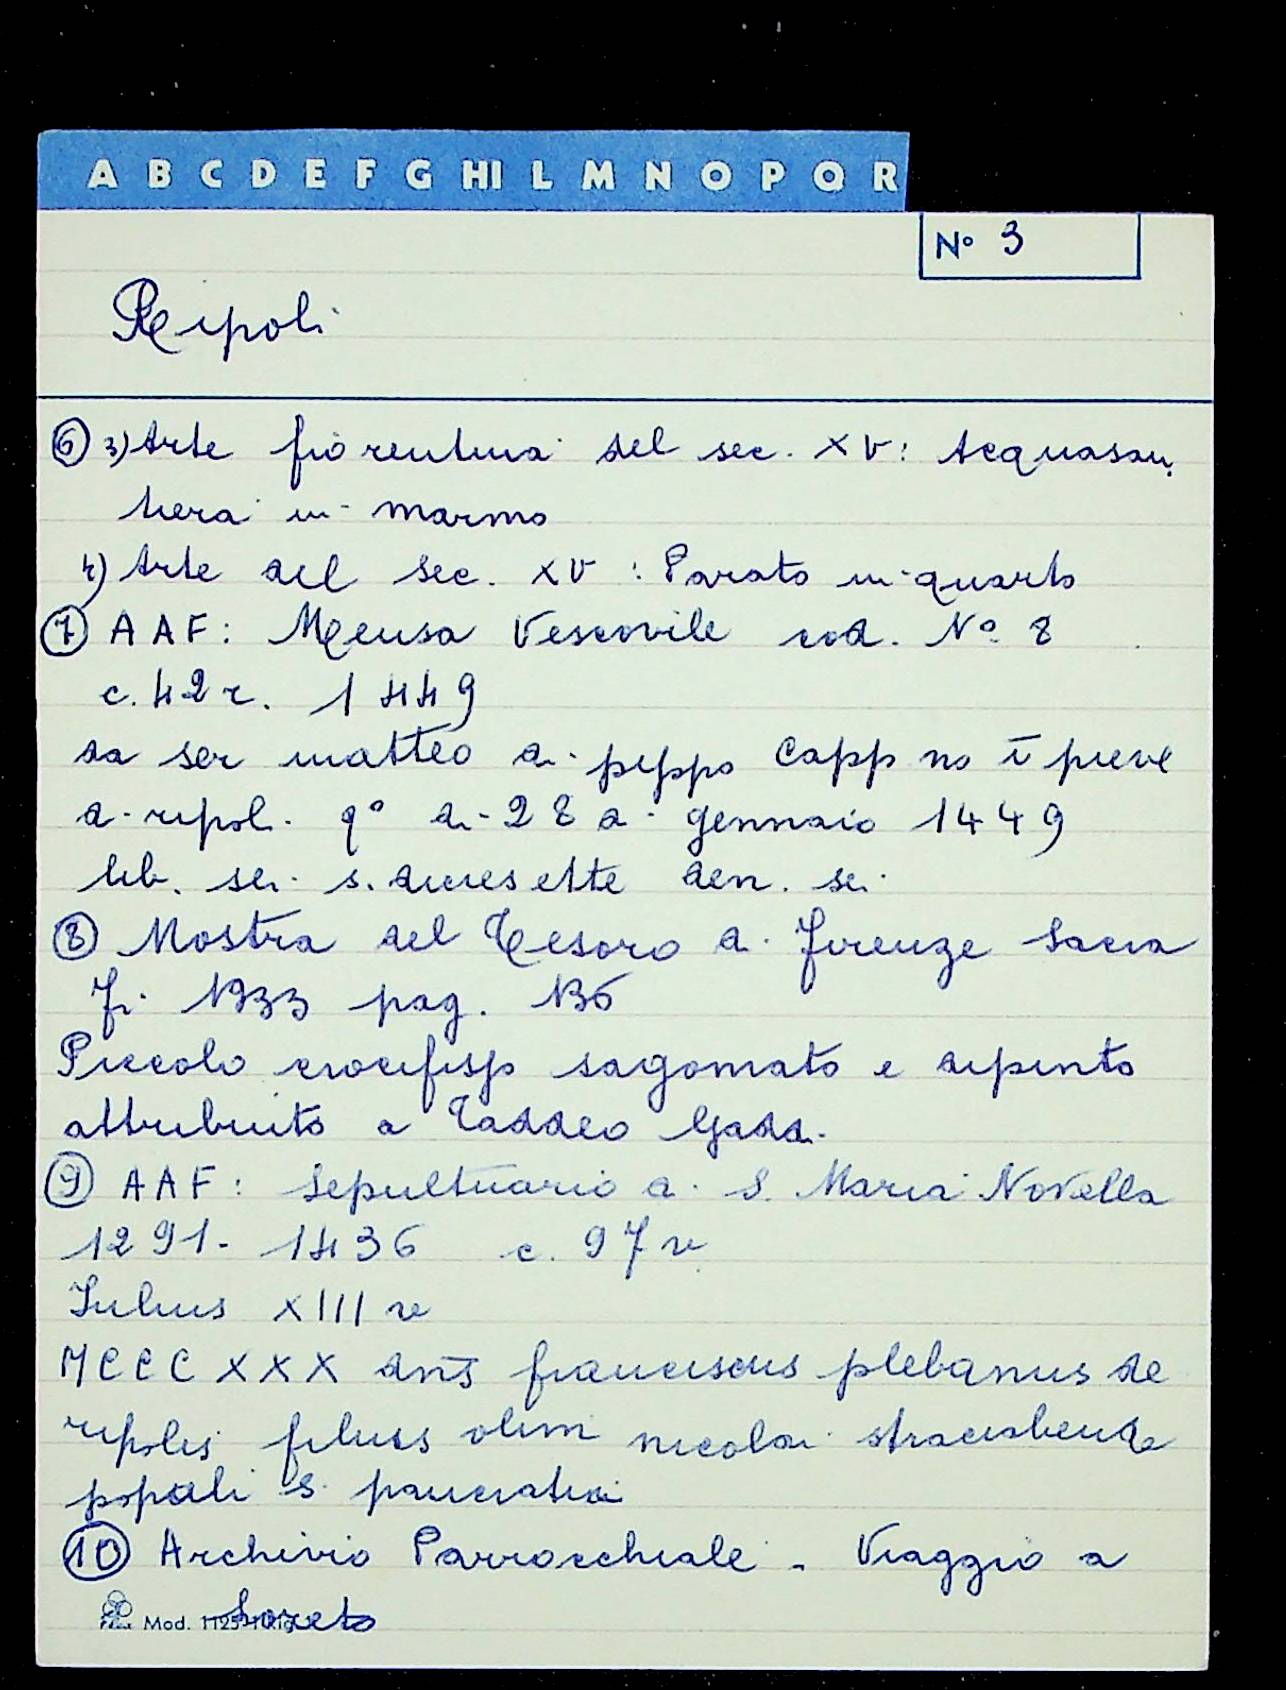 A B C D E F G HI L M N O P Q R
N° 3
Ripoli
⑥ 3) Arte fiorentina del sec. XV: Acquasan
tiera in marmo
4) Arte del sec. XV: Parato in quarto
⑦ AAF: Mensa Vescovile cod. N° 8
c. 42 r. 1449
da ser matteo di pippo Capp no ī pieve
a ripoli q° di 28 di gennaio 1449
lib. sei s. diciesette den. sei
⑧ Mostra del Tesoro di Firenze Sacra
Fi 1933 pag. 136
Piccolo crocifisso sagomato e dipinto
attribuito a Taddeo Gaddi
⑨ AAF: Sepultuario di S. Maria Novella
1291-1436 c. 97 v
Iulius XIII v
MCCCXXX dns̄ franciscus plebanus de
ripolis filius olim nicolai
popoli S. pancratii
⑩ Archivio Parrocchiale - Viaggio a
Loreto
Mod.